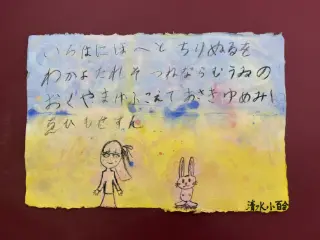 いろはにほへと ちりぬるを
わかよたれそ つねならむうゐの
おくやまけふこえて あさきゆめみし
ゑひもせすん
清水小百合